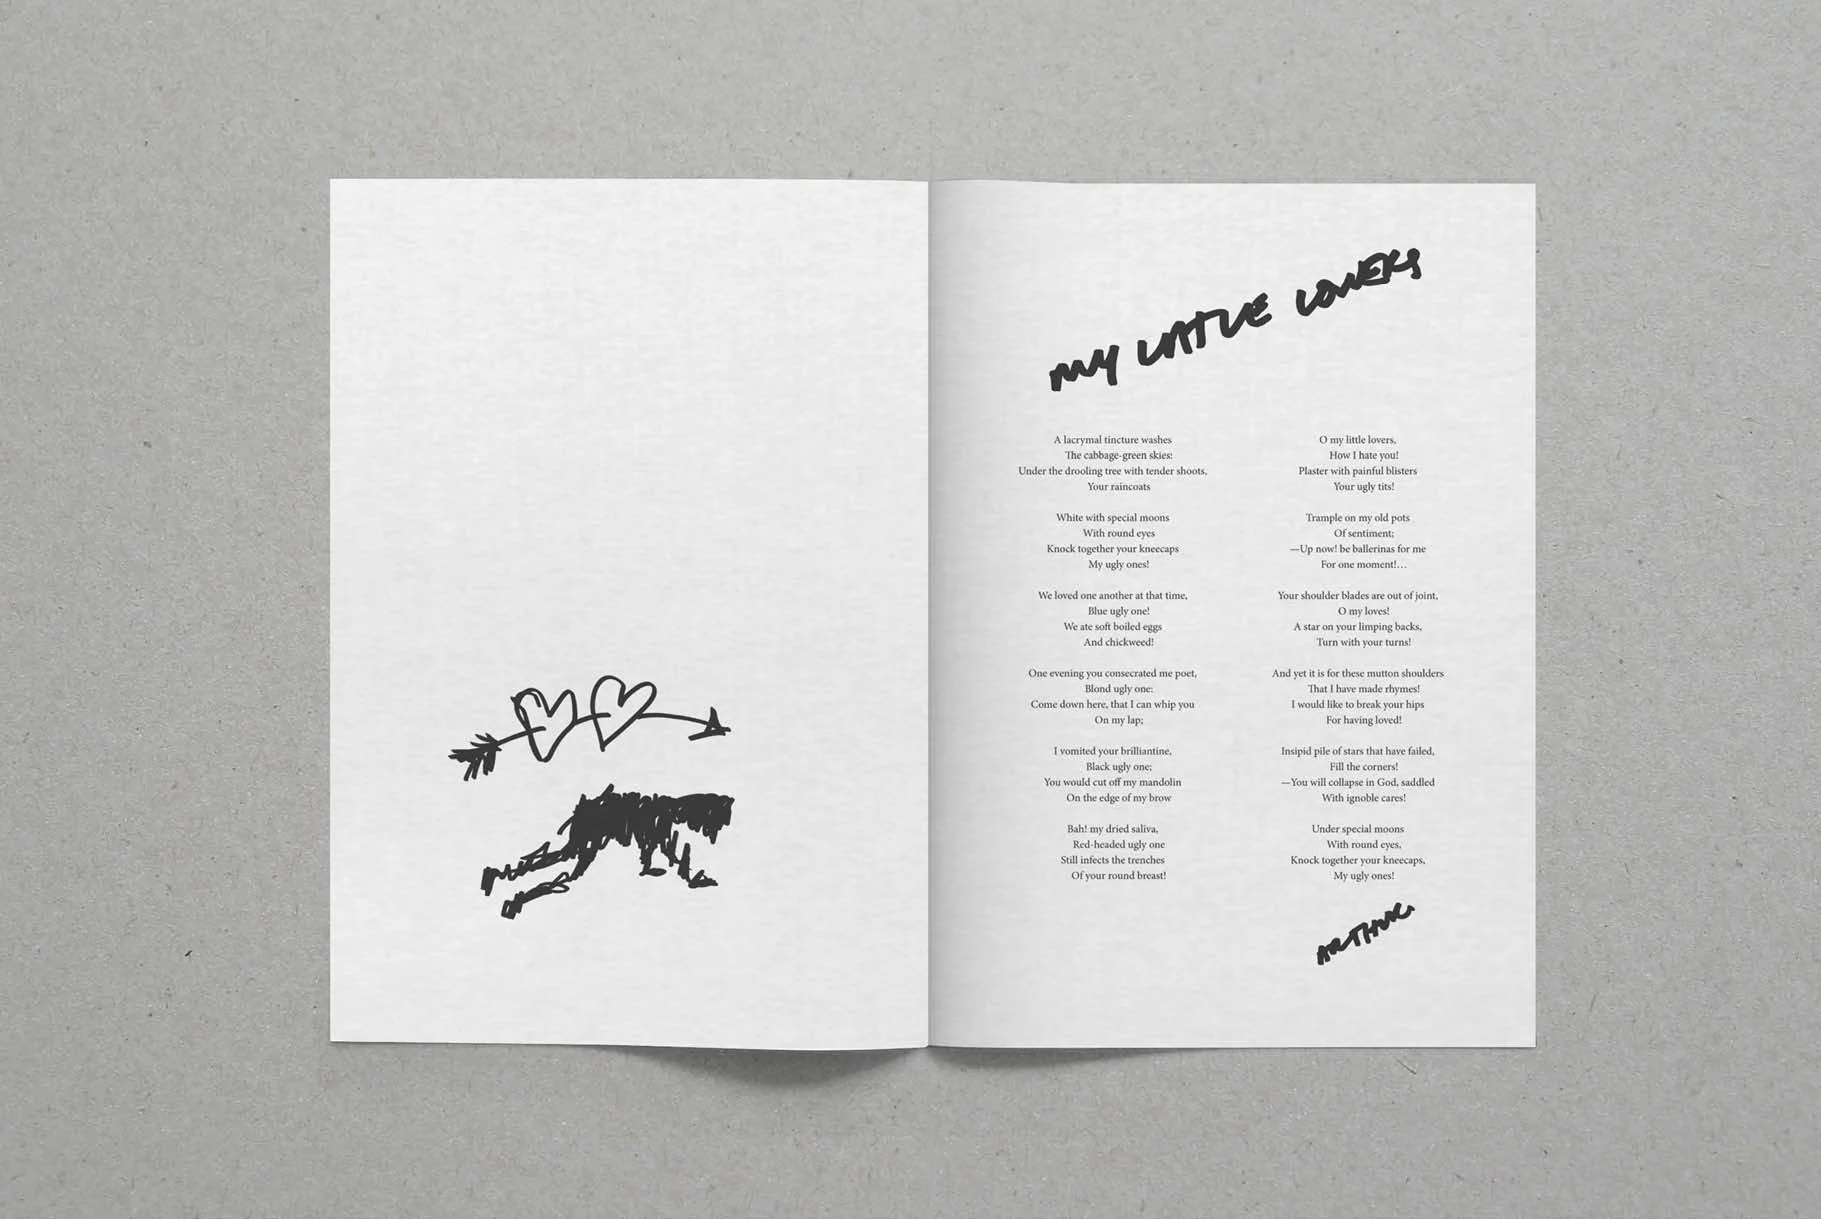 MY LITTLE LOVERS
A lacrymal tincture washes
The cabbage-green skies:
Under the drooling tree with tender shoots,
Your raincoats
White with special moons
With round eyes
Knock together your kneecaps
My ugly ones!
We loved one another at that time,
Blue ugly one!
We ate soft boiled eggs
And chickweed!
One evening you consecrated me poet,
Blond ugly one:
Come down here, that I can whip you
On my lap;
I vomited your brilliantine,
Black ugly one;
You would cut off my mandolin
On the edge of my brow
Bah! my dried saliva,
Red-headed ugly one
Still infects the trenches
Of your round breast!
O my little lovers,
How I hate you!
Plaster with painful blisters
Your ugly tits!
Trample on my old pots
Of sentiment;
—Up now! be ballerinas for me
For one moment!…
Your shoulder blades are out of joint,
O my loves!
A star on your limping backs,
Turn with your turns!
And yet it is for these mutton shoulders
That I have made rhymes!
I would like to break your hips
For having loved!
Insipid pile of stars that have failed,
Fill the corners!
—You will collapse in God, saddled
With ignoble cares!
Under special moons
With round eyes,
Knock together your kneecaps,
My ugly ones!
ARTHUR